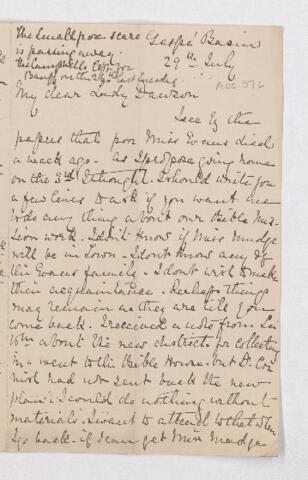 The Small pox scare
is passing away.
The Campbells left for
Banff on the 24th last Tuesday.
Gaspé Basin
29th July
ACC. 976
My dear Lady Dawson
I see by the
papers that poor Miss Evans died
a week ago - As I propose going home
on the 3rd I thought I should write you
a few lines to ask if you want me
to do any thing about our Bible Mis-
sion work. I don't know if Miss Mudge
will be in town. I dont know any of
the Evans family. I dont wish to make
their acquaintance. Perhaps things
may remain as they are till you
come back. I received a note from
about the new districts for collecting
in & went to the Bible House. but Dr. Cor
nish had not sent back the new
plans. I could do nothing without
materials. I want to attend to that when
I go back - if I can get Miss Mudge